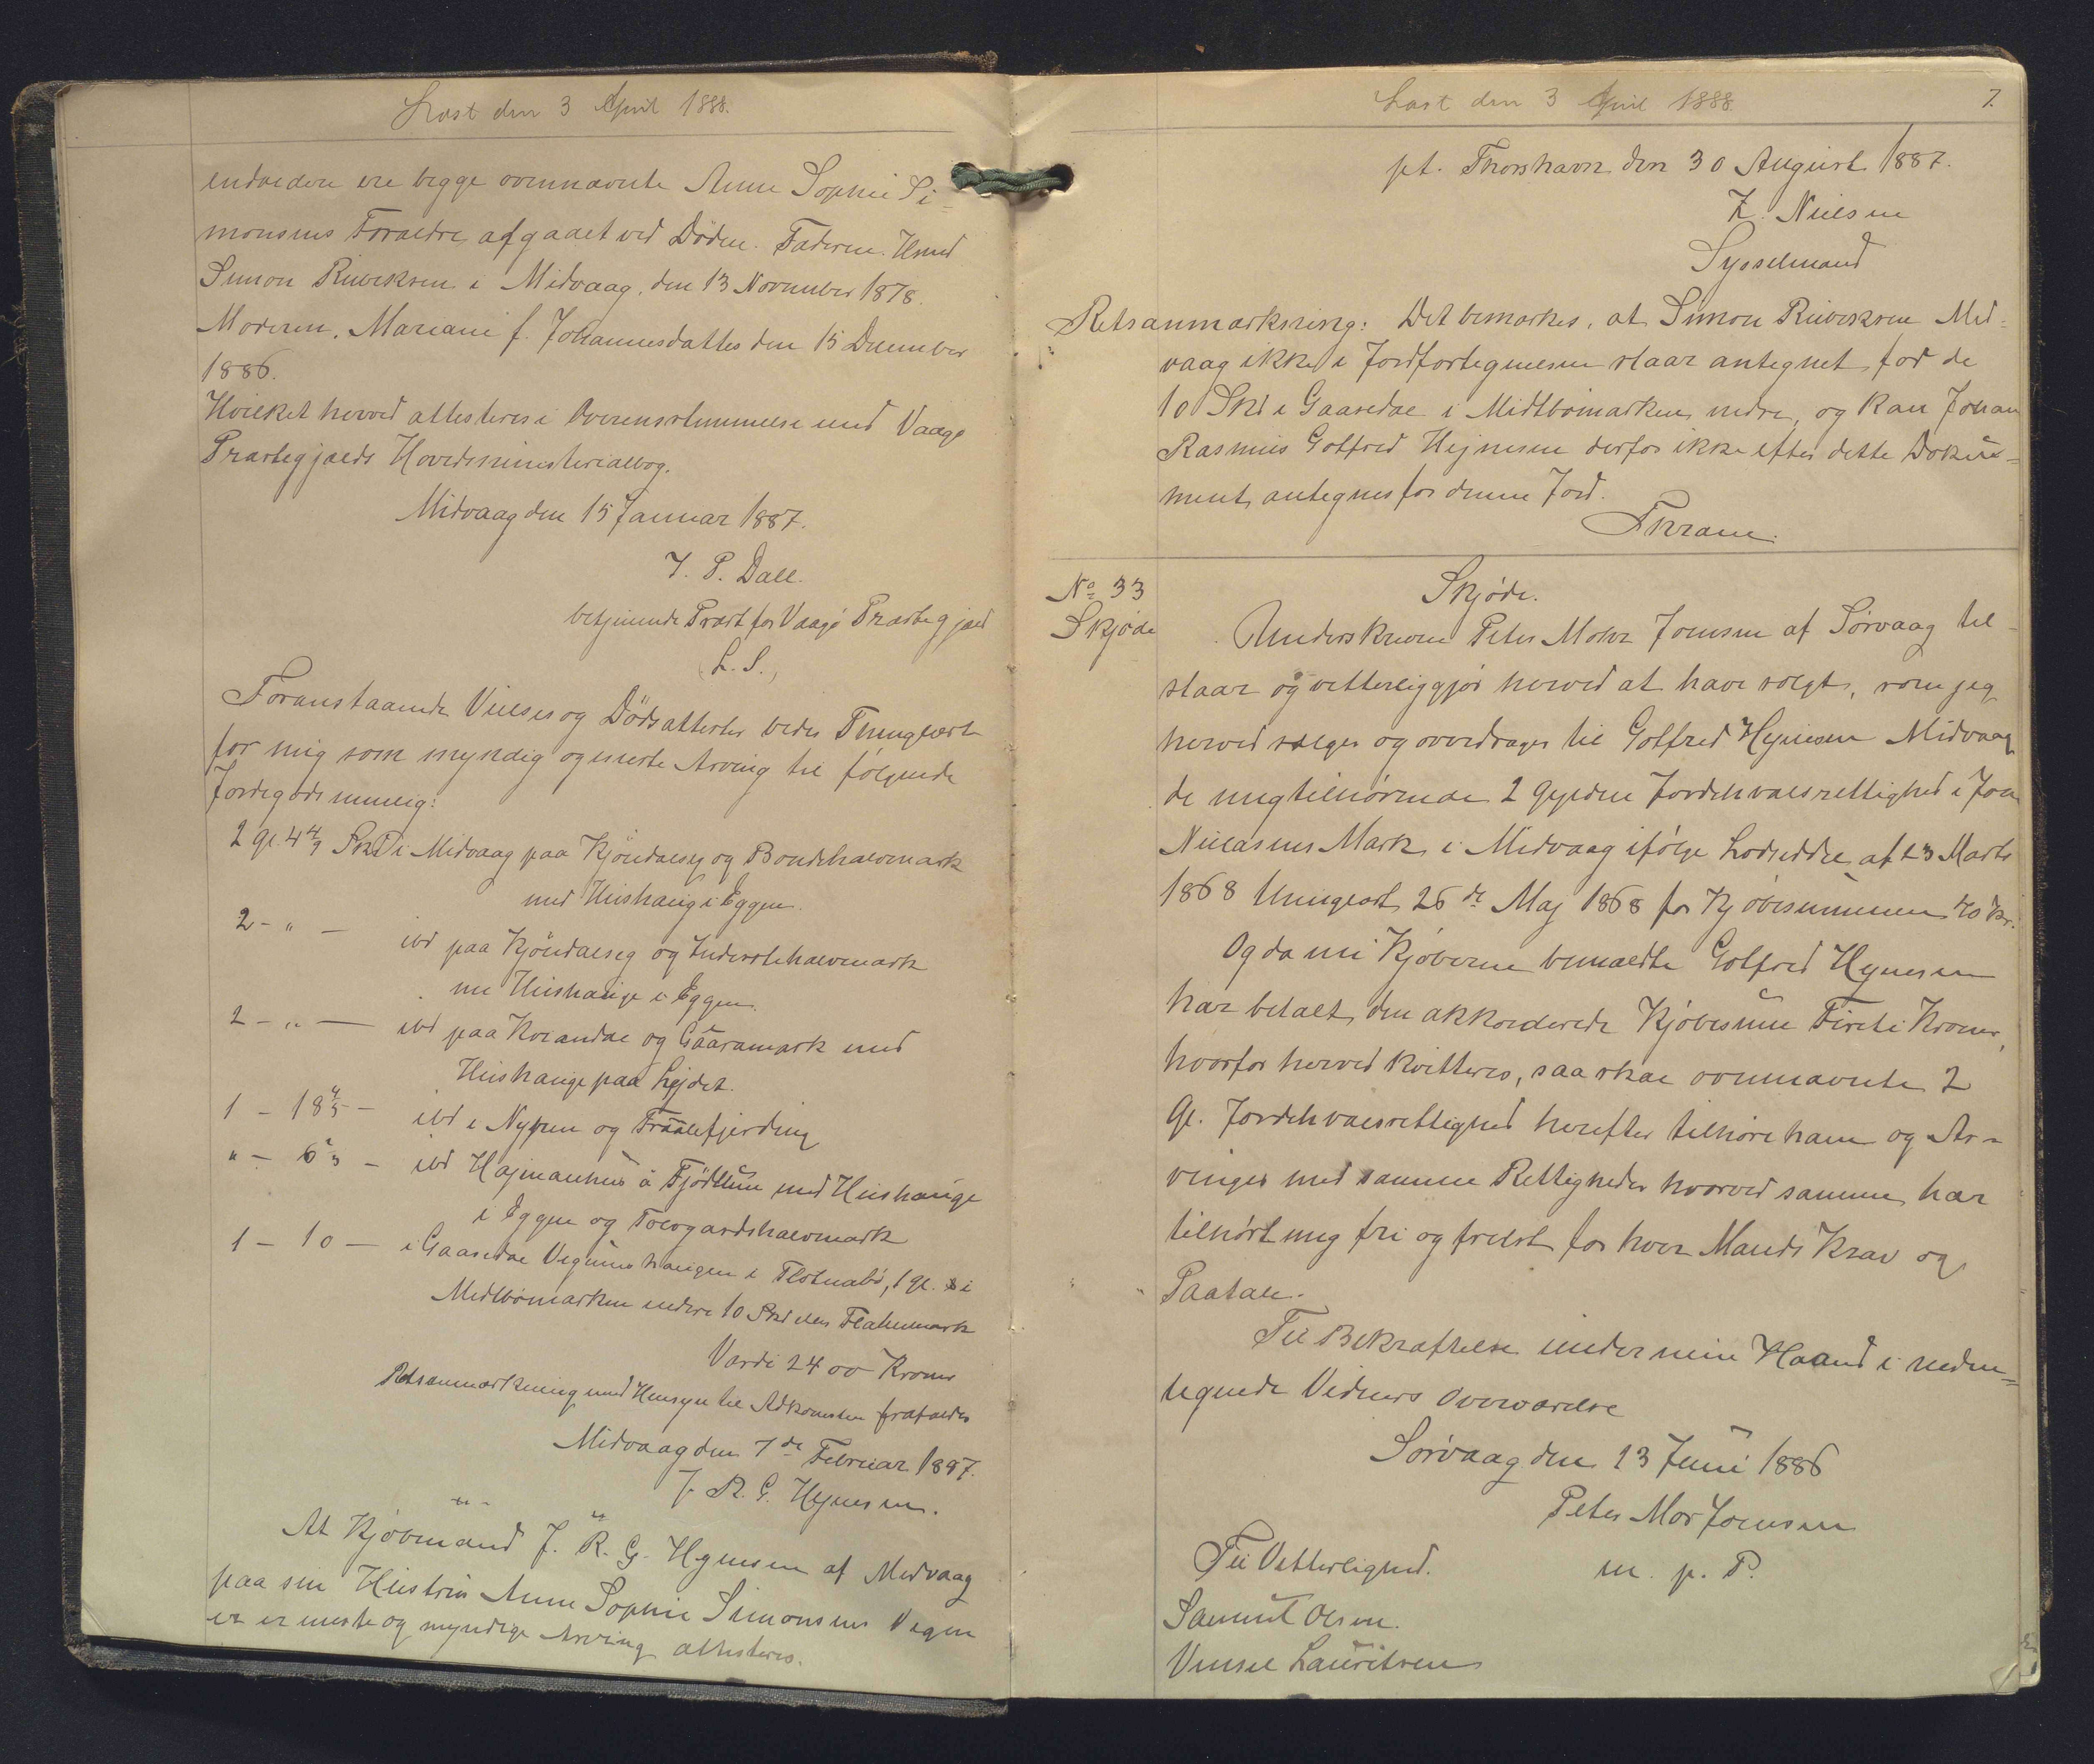 Læst den 3 April 1888.
endvidere ere begge ovennævnte Anne Sophie Si-
monsens Forældre afgaaet ved Döden. Faderen Hmd
Simon Rubeksen i Midvaag, den 13 November 1878.
Moderen, Mariane f. Johannesdatter den 15 December
1886.
Hvilket herved attesteres i Overensstemmelse med Vaagø
Præstegjælds Hovedministerialbog.
Midvaag den 15 Januar 1887.
J. P. Dall.
betjenende Præst for Vaagø Præstegjæld
(L. S.)
Foranstaaende Vielses og Dödsattester bedes Thinglæst
for mig som myndig og eneste Arving til følgende
Jordegods nemlig:
2 gl. 4 4/9 Skd i Midvaag paa Kjöndalseg og Bondehalvmark
med Huushaug i Eggen.
2 - " - ibd paa Kjöndalseg og Inderstehalvmark
me Huushauge i Eggen.
2 - " - ibd paa Koiandal og Gaaramark med
Huushauge paa Lejdet.
1 - 18 4/5 - ibd i Nypen og Traalefjerding
" - 6 2/3 - ibd Hajmanhus a Fjödtlun med Huushauge
i Eggen og Tolvgardshalvmark
1 - 10 - i Gaasedal Vegums haugen i Flotnabö, 1 gl. i
Midtbömarken nedre 10 Skd i den Flatnmark
Værdi 2400 Kroner
Retsanmærkning med Hensyn til Adkomsten frafaldes
Midvaag den 7de Februar 1887.
J. R. G. Hejnesen.
At Kjøbmand J. R. G. Hejnesen af Midvaag
paa sin Hustru Anne Sophie Simonsens Vegne
er er eneste og myndige Arving attesteres.
Læst den 3 April 1888.
7.
pt. Thorshavn den 30 August 1887.
Z. Nielsen
Sysselmand
Retsanmærkning: Det bemærkes, at Simon Rubeksen Mid-
vaag ikke i Jordfortegnelsen staar antegnet for de
10 Skd i Gaasedal i Midtbømarken nedre, og kan Johan
Rasmus Gotfred Hejnesen derfor ikke efter dette Doku-
ment antegnes for denne Jord.
FKrane.
No 33
Skjøde
Skjøde.
Underskrevne Peter Mohr Joensen af Sørvaag til-
staar og vitterliggjør herved at have solgt, som jeg
herved sælger og overdrager til Gotfred Hejnesen Midvaag
de mig tilhørende 2 Gylden Jordehvalsrettighed i Jon
Nielasens Mark i Midvaag ifølge Lodseddel af 23 Marts
1868 thinglæst 26de Maj 1868 for Kjøbesummen 40 Kr.
Og da nu Kjøberne bemældte Gotfred Hejnesen
har betalt den akkorderede Kjøbesum Fireti Kroner,
hvorfor herved kvitteres, saa skal ovennævnte 2
Gl. Jordehvalsrettighed herefter tilhøre ham og Ar-
vinger med samme Rettigheder hvorved samme har
tilhørt mig fri og frelst for hver Mands Krav og
Paatale.
Til Bekræftelse under min Haand i neden-
tegnede Vidners Overværelse
Sørvaag den 23 Juni 1886
Peter Mor Joensen
m. p. P.
Til Vitterlighed.
Samuel Olsen.
Vensel Lauritsen